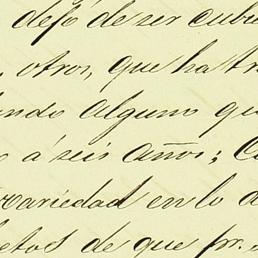 dejó de ser cubie
, otros, que ha tr
ando alguno qu
o á seis años; C
variedad en lo d
letos de que pr